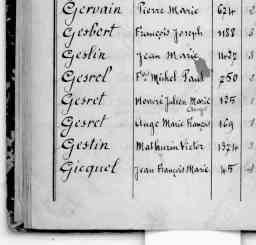 Gervain Pierre Marie 624
Gesbert François Joseph 1188
Geslin Jean Marie 1437
Gesrel Fçois Michel Paul 250
Gesret Honoré Julien Marie 125
Ange
Gesret Ange Marie François 169
Gestin Mathurin Victor 1324
Gicquel Jean François Marie 45